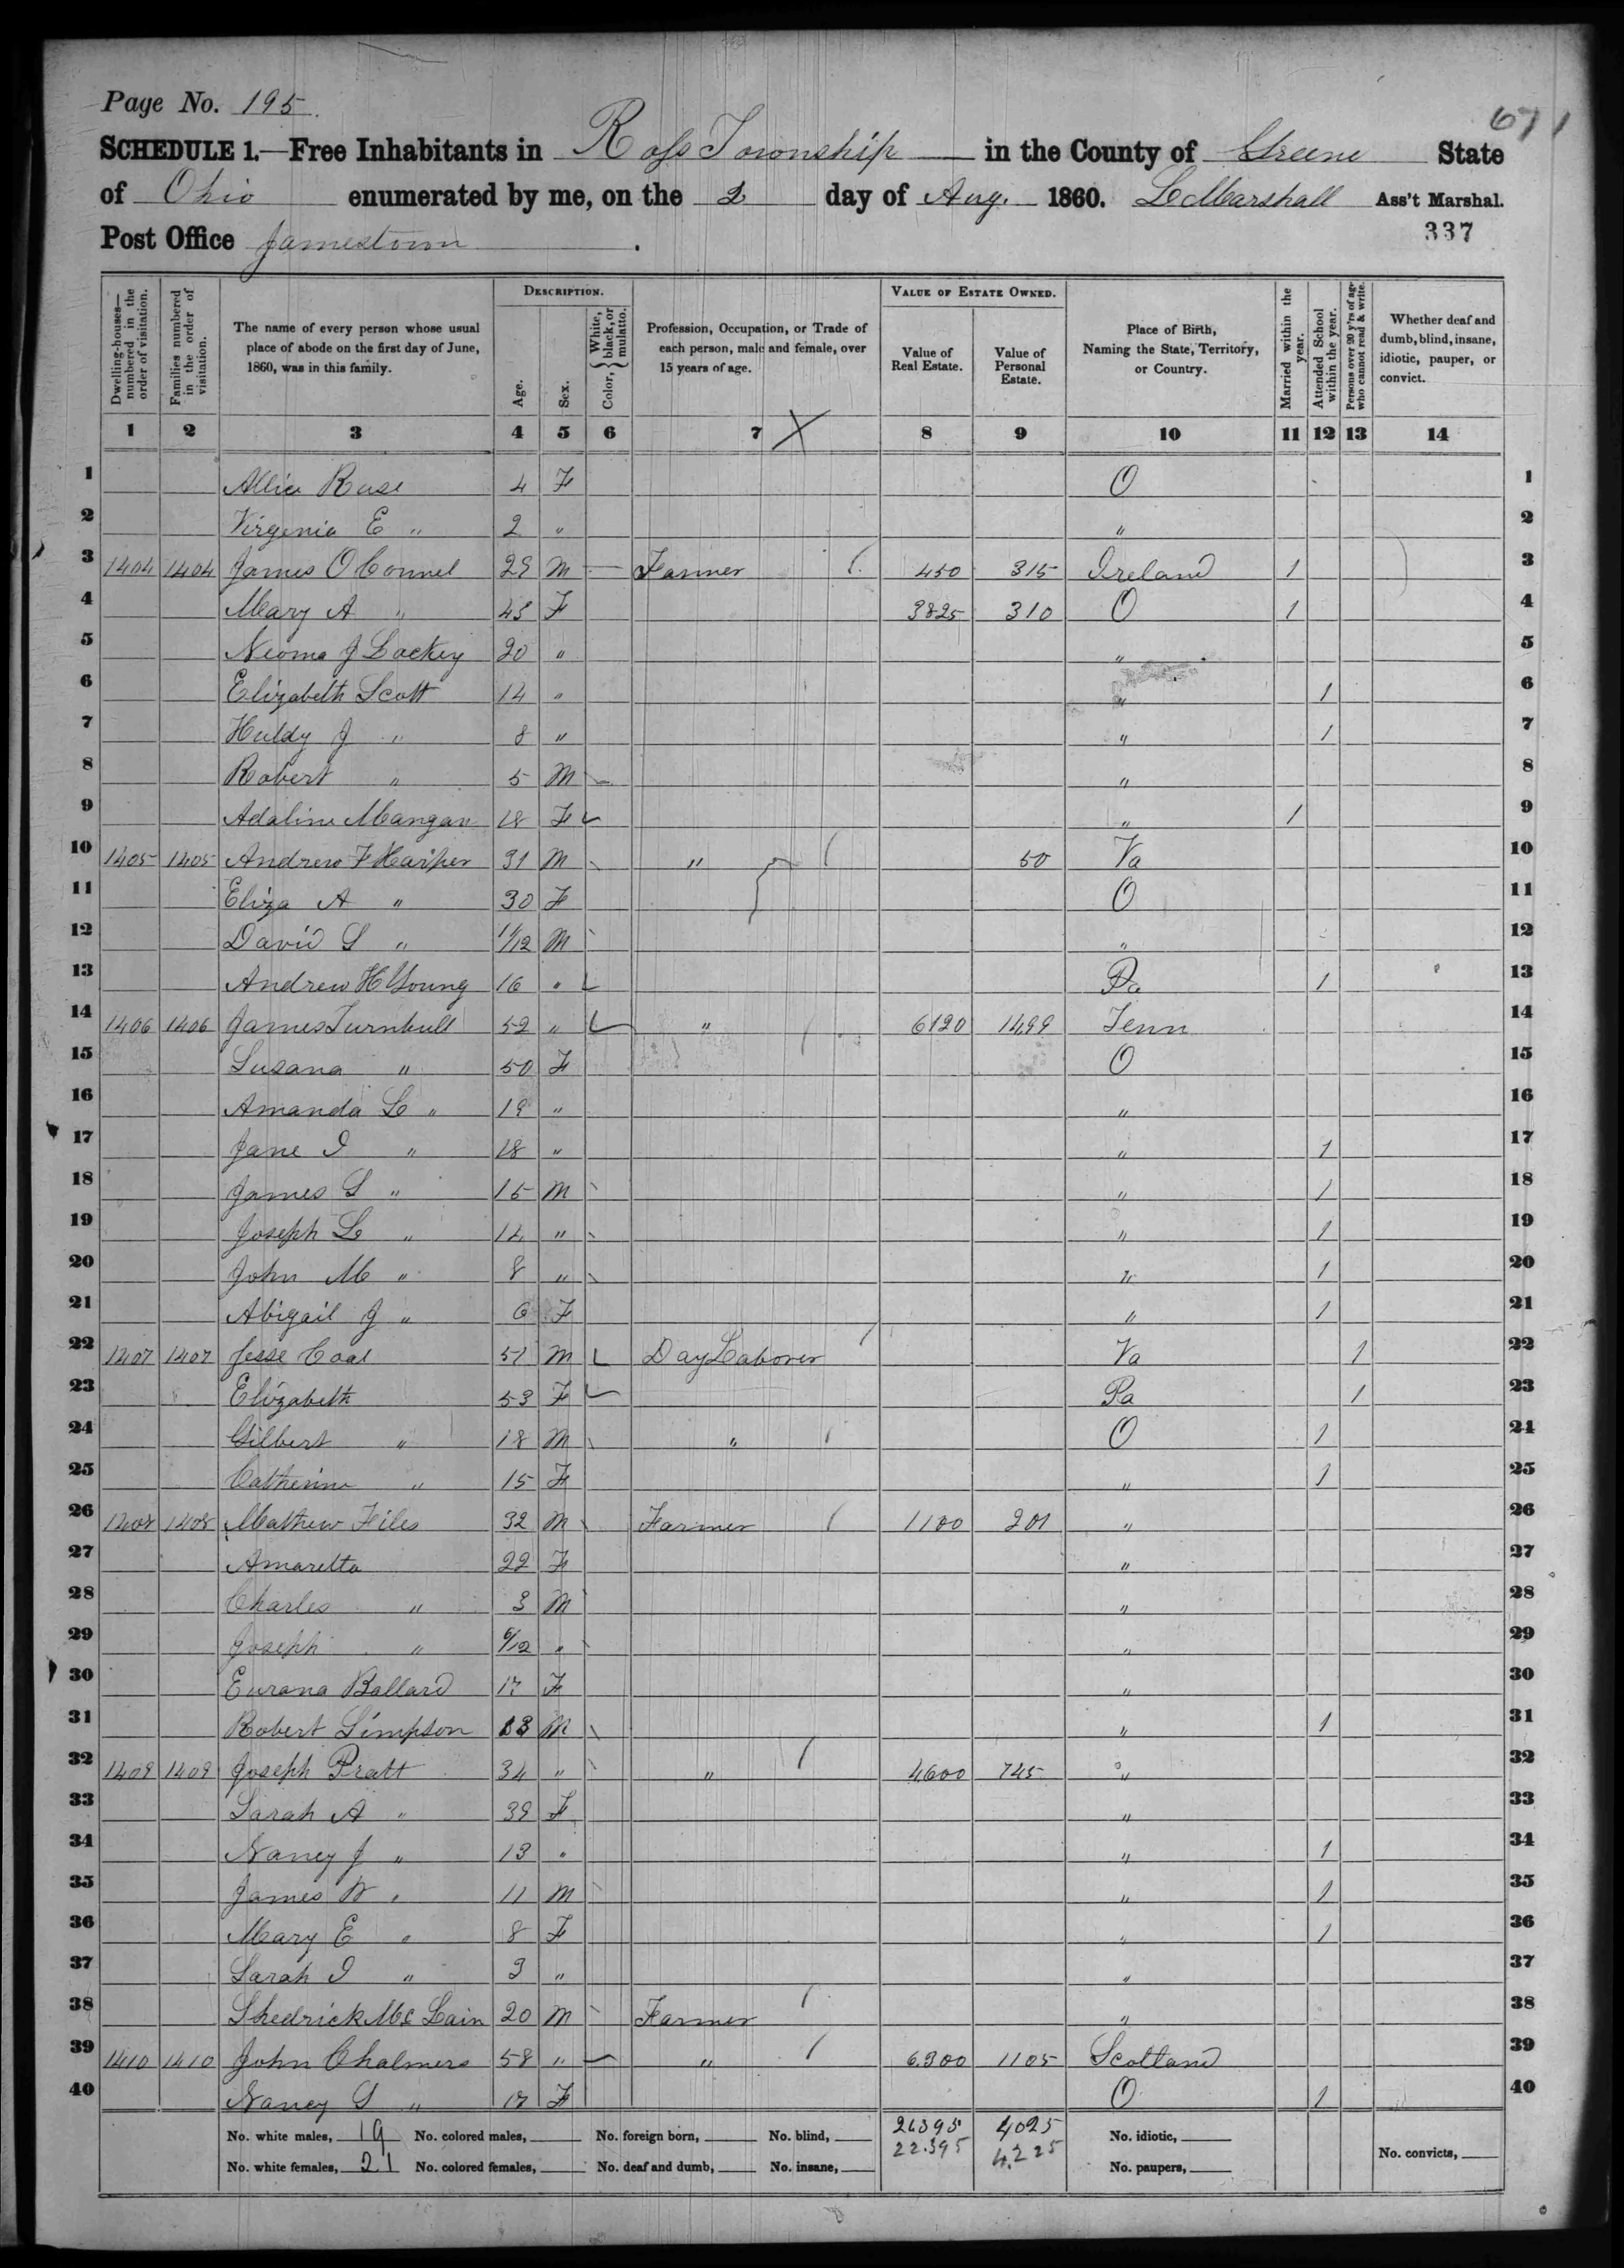 Page No. 195
671
SCHEDULE 1.—Free Inhabitants in Ross Township in the County of Greene State
of Ohio enumerated by me, on the 2 day of Aug. 1860. L Marshall Ass't Marshal.
Post Office Jamestown.
337
Dwelling-houses—numbered in the order of visitation.
Families numbered in the order of visitation.
The name of every person whose usual place of abode on the first day of June, 1860, was in this family.
DESCRIPTION.
Age.
Sex.
Color, { White, black, or mulatto.
Profession, Occupation, or Trade of each person, male and female, over 15 years of age.
VALUE OF ESTATE OWNED.
Value of Real Estate.
Value of Personal Estate.
Place of Birth, Naming the State, Territory, or Country.
Married within the year.
Attended School within the year.
Persons over 20 y'rs of age who cannot read & write.
Whether deaf and dumb, blind, insane, idiotic, pauper, or convict.
1 2 3 4 5 6 7 X 8 9 10 11 12 13 14
1 Allice Ruse 4 F O 1
2 Virginia E " 2 " " 2
3 1404 1404 James O Connel 29 M Farmer 450 315 Ireland 1 3
4 Mary A " 43 F 3825 310 O 1 4
5 Neoma J Lackey 20 " " 5
6 Elizabeth Scott 14 " " 1 6
7 Huldy J " 8 " " 1 7
8 Robert " 5 M " 8
9 Adaline Mangan 18 F " 1 9
10 1405 1405 Andrew F Harper 31 M " 50 Va 10
11 Eliza A " 30 F O 11
12 David S " 11/12 M " 12
13 Andrew H Young 16 " Pa 1 13
14 1406 1406 James Turnbull 52 " " 6120 1499 Tenn 14
15 Susana " 50 F O 15
16 Amanda L " 19 " " 16
17 Jane I " 18 " " 1 17
18 James S " 15 M " 1 18
19 Joseph L " 12 " " 1 19
20 John M " 8 " " 1 20
21 Abigail J " 6 F " 1 21
22 1407 1407 Jesse Coal 51 M Day Laborer Va 1 22
23 Elizabeth 53 F Pa 1 23
24 Gilbert " 18 M " O 1 24
25 Catherine " 15 F " 1 25
26 1408 1408 Mathew Files 32 M Farmer 1100 201 " 26
27 Amaretta 22 F " 27
28 Charles " 3 M " 28
29 Joseph " 6/12 " " 29
30 Eurana Ballard 17 F " 30
31 Robert Simpson 13 M " 1 31
32 1409 1409 Joseph Pratt 34 " " 4600 745 " 32
33 Sarah A " 39 F " 33
34 Nancy J " 13 " " 1 34
35 James W " 11 M " 1 35
36 Mary E " 8 F " 1 36
37 Sarah I " 3 " " 37
38 Shedrick Mc Lain 20 M Farmer " 38
39 1410 1410 John Chalmers 58 " " 6300 1105 Scotland 39
40 Nancy S " 17 F O 1 40
No. white males, 19 No. colored males, No. foreign born, No. blind, 26395 4025 No. idiotic,
22.395 4.225 No. convicts,
No. white females, 21 No. colored females, No. deaf and dumb, No. insane, No. paupers,